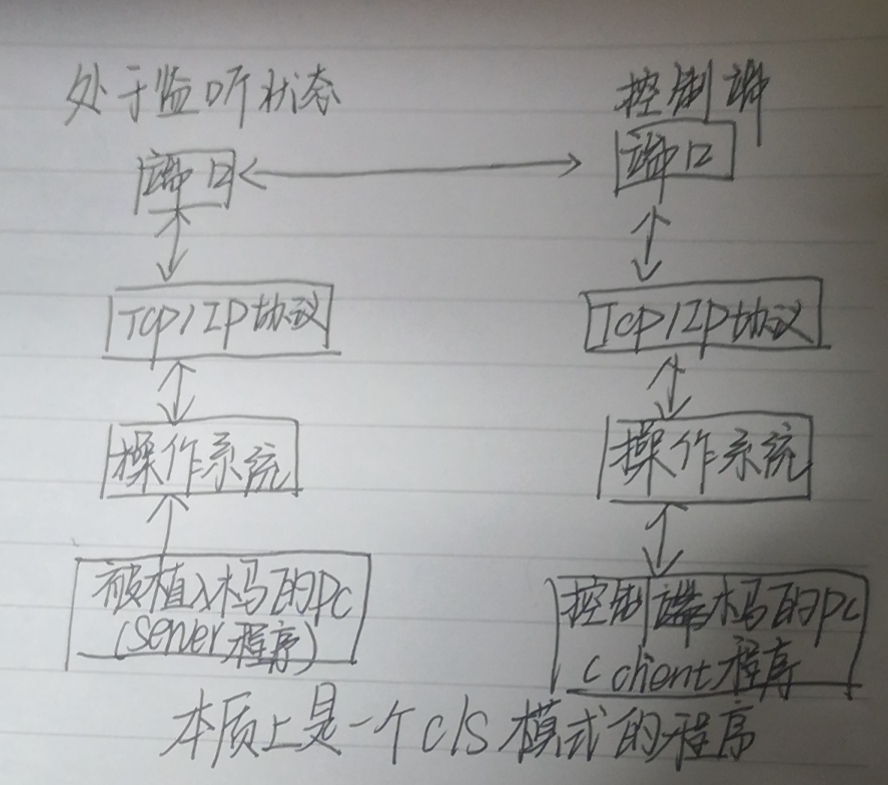 处于监听状态
控制端
端口
端口
TCP/IP协议
TCP/IP协议
操作系统
操作系统
被植入木马的PC
(server程序)
控制端木马的PC
(client程序
本质上是一个C/S模式的程序